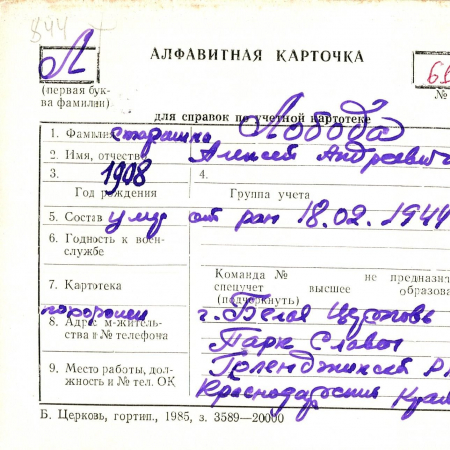 844
Л
(первая бук-
ва фамилии)
АЛФАВИТНАЯ КАРТОЧКА
№
для справок по учетной картотеке
1. Фамилия старшина Лобода
2. Имя, отчество Алексей Андреевич
3. 1908 4.
Год рождения Группа учета
5. Состав умер от ран 18.02.1944
6. Годность к воен-
службе
Команда № не предназна
7. Картотека спецучет высшее образова
(подчеркнуть)
похоронен г. Белая Церковь
8. Адрес м-житель-
ства и № телефона Парк Славы
9. Место работы, дол-
жность и № тел. ОК
Краснодарский Края
Б. Церковь, гортип., 1985, з. 3589—20000